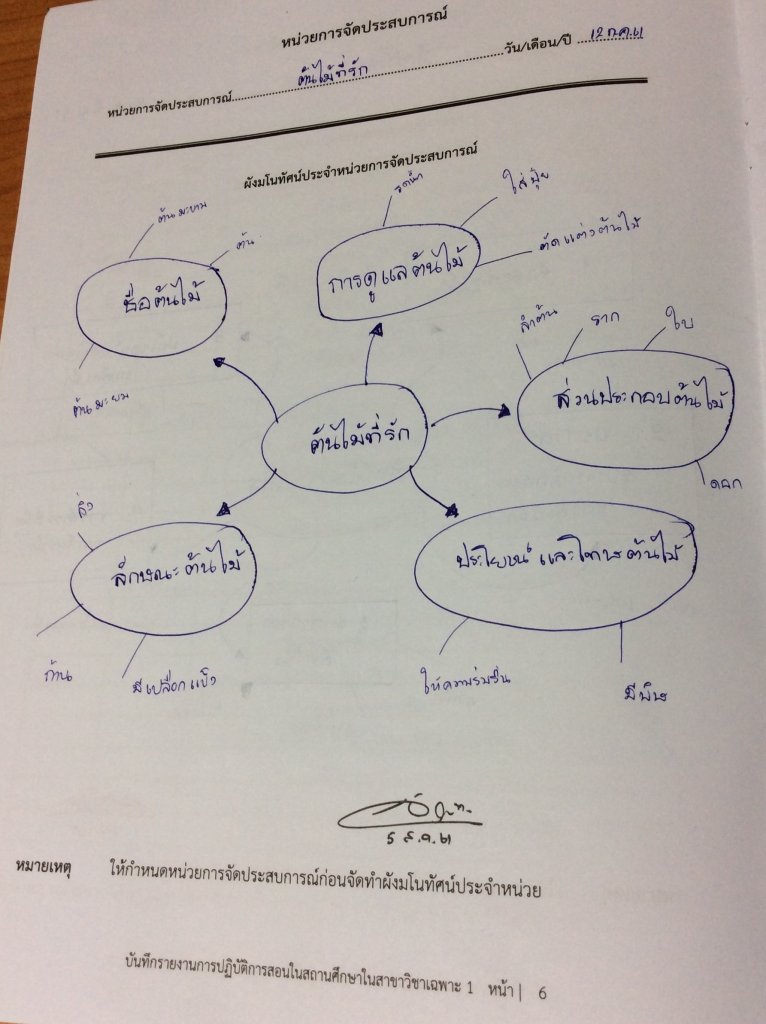 หน่วยการจัดประสบการณ์
หน่วยการจัดประสบการณ์ ต้นไม้ที่รัก วัน/เดือน/ปี 12 ก.ค. 61
ผังมโนทัศน์ประจำหน่วยการจัดประสบการณ์
ต้นมะขาม
ต้น
ชื่อต้นไม้
ต้นมะยม
รดน้ำ
ใส่ปุ๋ย
ตัดแต่งต้นไม้
การดูแลต้นไม้
ลำต้น
ราก
ใบ
ส่วนประกอบต้นไม้
ดอก
ต้นไม้ที่รัก
ลักษณะต้นไม้
ก้าน
มีเปลือกแข็ง
ประโยชน์และโทษต้นไม้
ให้ความร่มรื่น
มีพิษ
5 ส.ค. 61
หมายเหตุ ให้กำหนดหน่วยการจัดประสบการณ์ก่อนจัดทำผังมโนทัศน์ประจำหน่วย
บันทึกรายงานการปฏิบัติการสอนในสถานศึกษาในสาขาวิชาเฉพาะ 1 หน้า | 6